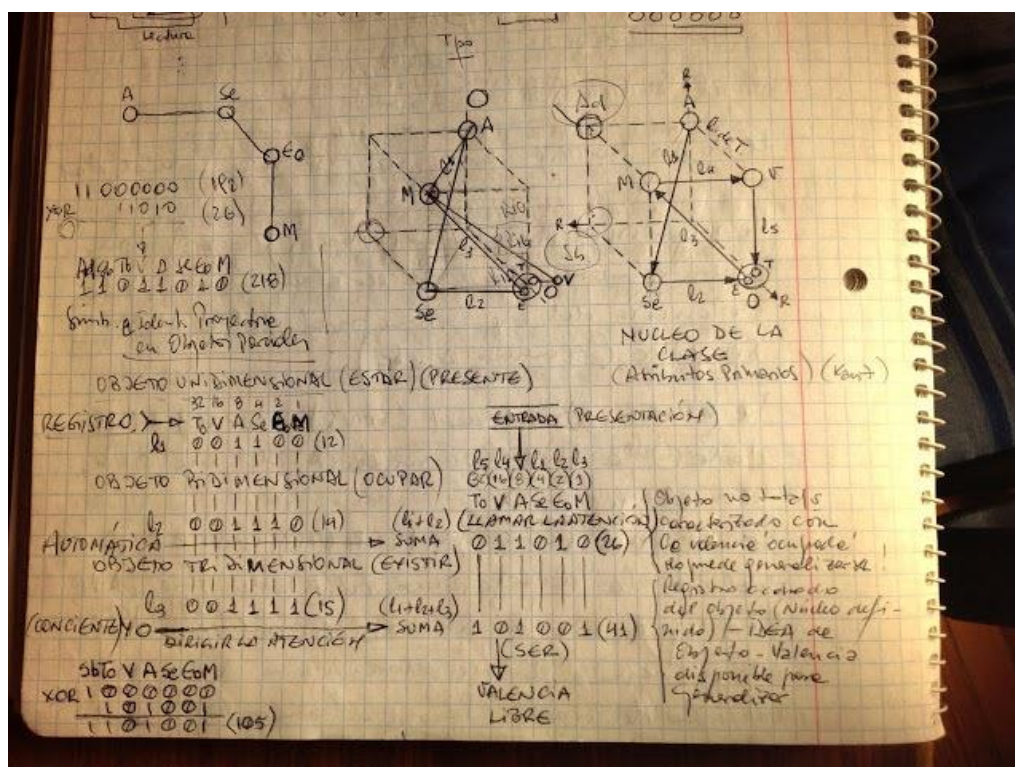 Lectura
Tpo
A Se Eo M
11000000 (192)
XOR 11010 (26)
Ad Sb To V A Se Eo M
1 1 0 1 1 0 1 0 (218)
en Objetos Parciales
O A M Se l2 l3 E V
R10
Ad Sb R A l1 l2 l3 l4 l5 M V T Se E O R
NUCLEO DE LA
CLASE
(Atributos Primarios) (Kant)
OBJETO UNIDIMENSIONAL (ESTAR) (PRESENTE)
32 16 8 4 2 1
REGISTRO To V A Se Eo M
l1 0 0 1 1 0 0 (12)
OBJETO BIDIMENSIONAL (OCUPAR)
l2 0 0 1 1 1 0 (14)
AUTOMÁTICA
OBJETO TRIDIMENSIONAL (EXISTIR)
l3 0 0 1 1 1 1 (15)
(CONCIENTE) YO
DIRIGIR LA ATENCIÓN
Sb To V A Se Eo M
XOR 1 0 0 0 0 0 0
1 0 1 0 0 1
1 1 0 1 0 0 1 (105)
ENTRADA (PRESENTACIÓN)
l5 l4 l1 l2 l3
(16) (8) (4) (2) (1)
To V A Se Eo M
(l1+l2) (LLAMAR LA ATENCIÓN)
SUMA 0 1 1 0 1 0 (26)
(l1+l2+l3)
SUMA 1 0 1 0 0 1 (41)
(SER)
VALENCIA
LIBRE
Objeto no totals
caracterizado con
la valencia 'ocupada'
no puede generalizarse!
Registro acabado
del objeto (Núcleo defi-
nido) - IDEA de
Objeto - Valencia
disponible para
Generalizar